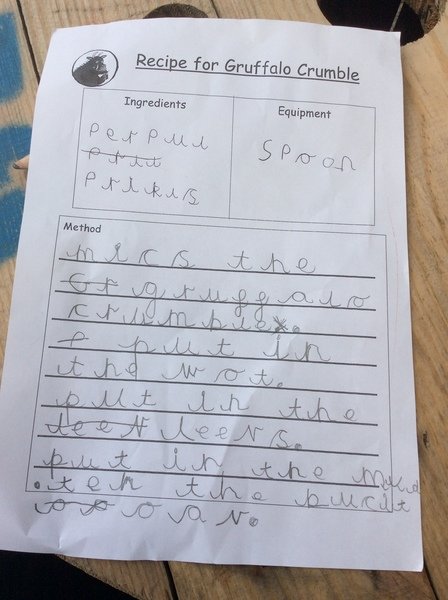 Recipe for Gruffalo Crumble
Ingredients
Equipment
perpul
spoon
Method
mics the
gruffalo
crumble.
put in
the wot.
put in the
leevs.
put in the mud
.ten the bucit
oav.